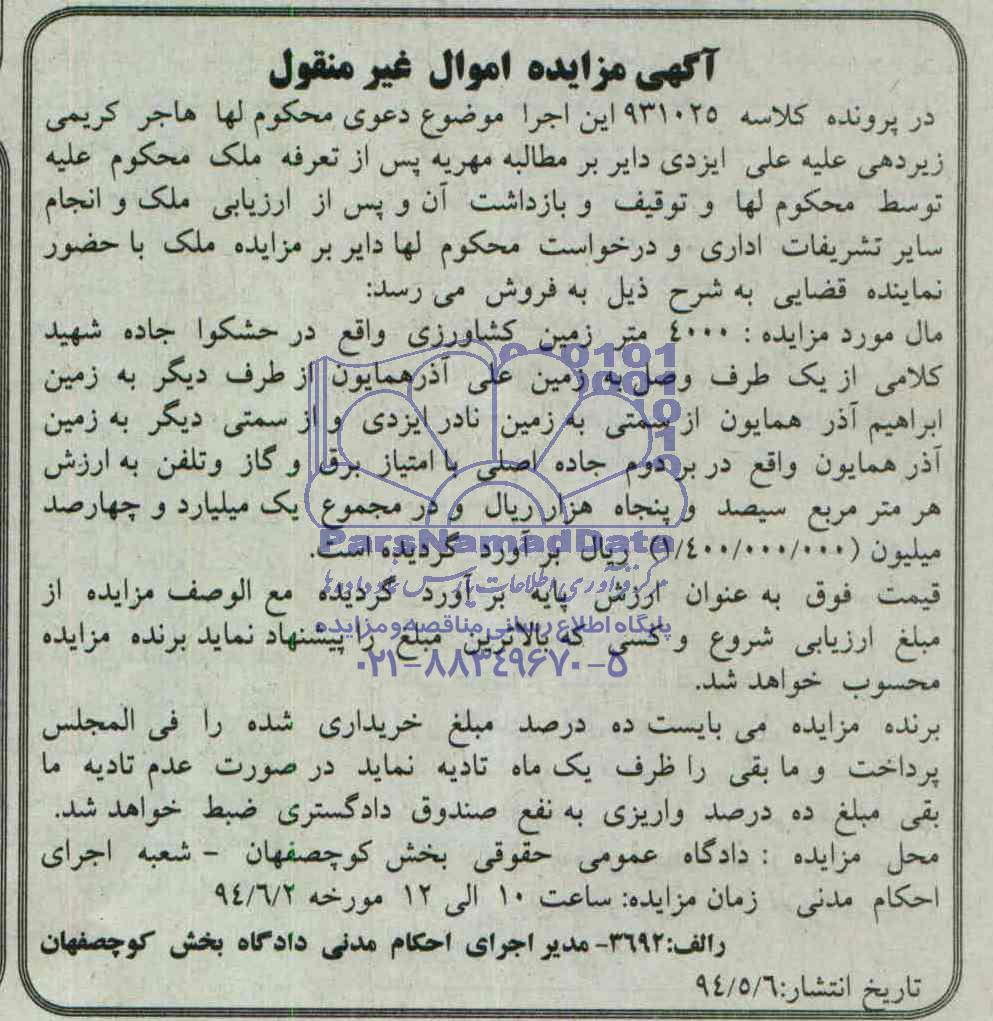 آگهی مزایده اموال غیر منقول
در پرونده کلاسه ۹۳۱۰۲۵ این اجرا موضوع دعوی محکوم لها هاجر کریمی
زیردهی علیه علی ایزدی دایر بر مطالبه مهریه پس از تعرفه ملک محکوم علیه
توسط محکوم لها و توقیف و بازداشت آن و پس از ارزیابی ملک و انجام
سایر تشریفات اداری و درخواست محکوم لها دایر بر مزایده ملک با حضور
نماینده قضایی به شرح ذیل به فروش می رسد:
مال مورد مزایده : ۴۰۰۰ متر زمین کشاورزی واقع در حشکوا جاده شهید
کلامی از یک طرف وصل به زمین علی آذرهمایون از طرف دیگر به زمین
ابراهیم آذر همایون از سمتی به زمین نادر ایزدی و از سمتی دیگر به زمین
آذر همایون واقع در بر دوم جاده اصلی با امتیاز برق و گاز وتلفن به ارزش
هر متر مربع سیصد و پنجاه هزار ریال و در مجموع یک میلیارد و چهارصد
میلیون (۱/۴۰۰/۰۰۰/۰۰۰) ریال بر آورد گردیده است.
قیمت فوق به عنوان ارزش پایه بر آورد گردیده مع الوصف مزایده از
مبلغ ارزیابی شروع و کسی که بالاترین مبلغ را پیشنهاد نماید برنده مزایده
محسوب خواهد شد.
برنده مزایده می بایست ده درصد مبلغ خریداری شده را فی المجلس
پرداخت و ما بقی را ظرف یک ماه تادیه نماید در صورت عدم تادیه ما
بقی مبلغ ده درصد واریزی به نفع صندوق دادگستری ضبط خواهد شد.
محل مزایده : دادگاه عمومی حقوقی بخش کوچصفهان - شعبه اجرای
احکام مدنی زمان مزایده: ساعت ۱۰ الی ۱۲ مورخه ۹۴/۶/۲
رالف:۳۶۹۲- مدیر اجرای احکام مدنی دادگاه بخش کوچصفهان
تاریخ انتشار:۹۴/۵/۶
ParsNamadData
پایگاه اطلاع رسانی مناقصه و مزایده
۰۲۱-۸۸۳۴۹۶۷۰-۵